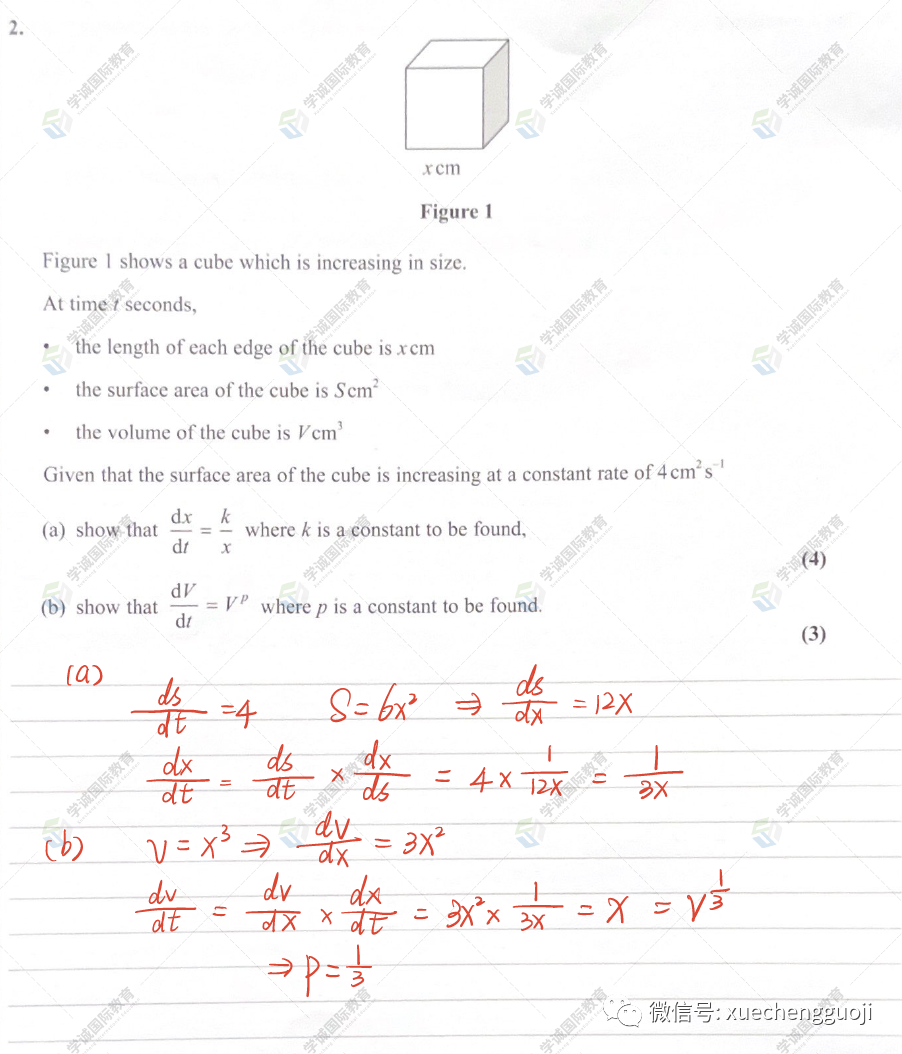 2.
x cm
Figure 1
Figure 1 shows a cube which is increasing in size.
At time t seconds,
• the length of each edge of the cube is x cm
• the surface area of the cube is S cm²
• the volume of the cube is V cm³
Given that the surface area of the cube is increasing at a constant rate of 4 cm² s⁻¹
(a) show that dx/dt = k/x where k is a constant to be found,
(4)
(b) show that dV/dt = V^p where p is a constant to be found.
(3)
(a)
ds/dt = 4 S = 6x² ⇒ ds/dx = 12x
dx/dt = ds/dt × dx/ds = 4 × 1/12x = 1/3x
(b) V = x³ ⇒ dv/dx = 3x²
dv/dt = dv/dx × dx/dt = 3x² × 1/3x = x = V^1/3
⇒ p = 1/3
学诚国际教育
微信号: xuechengguoji